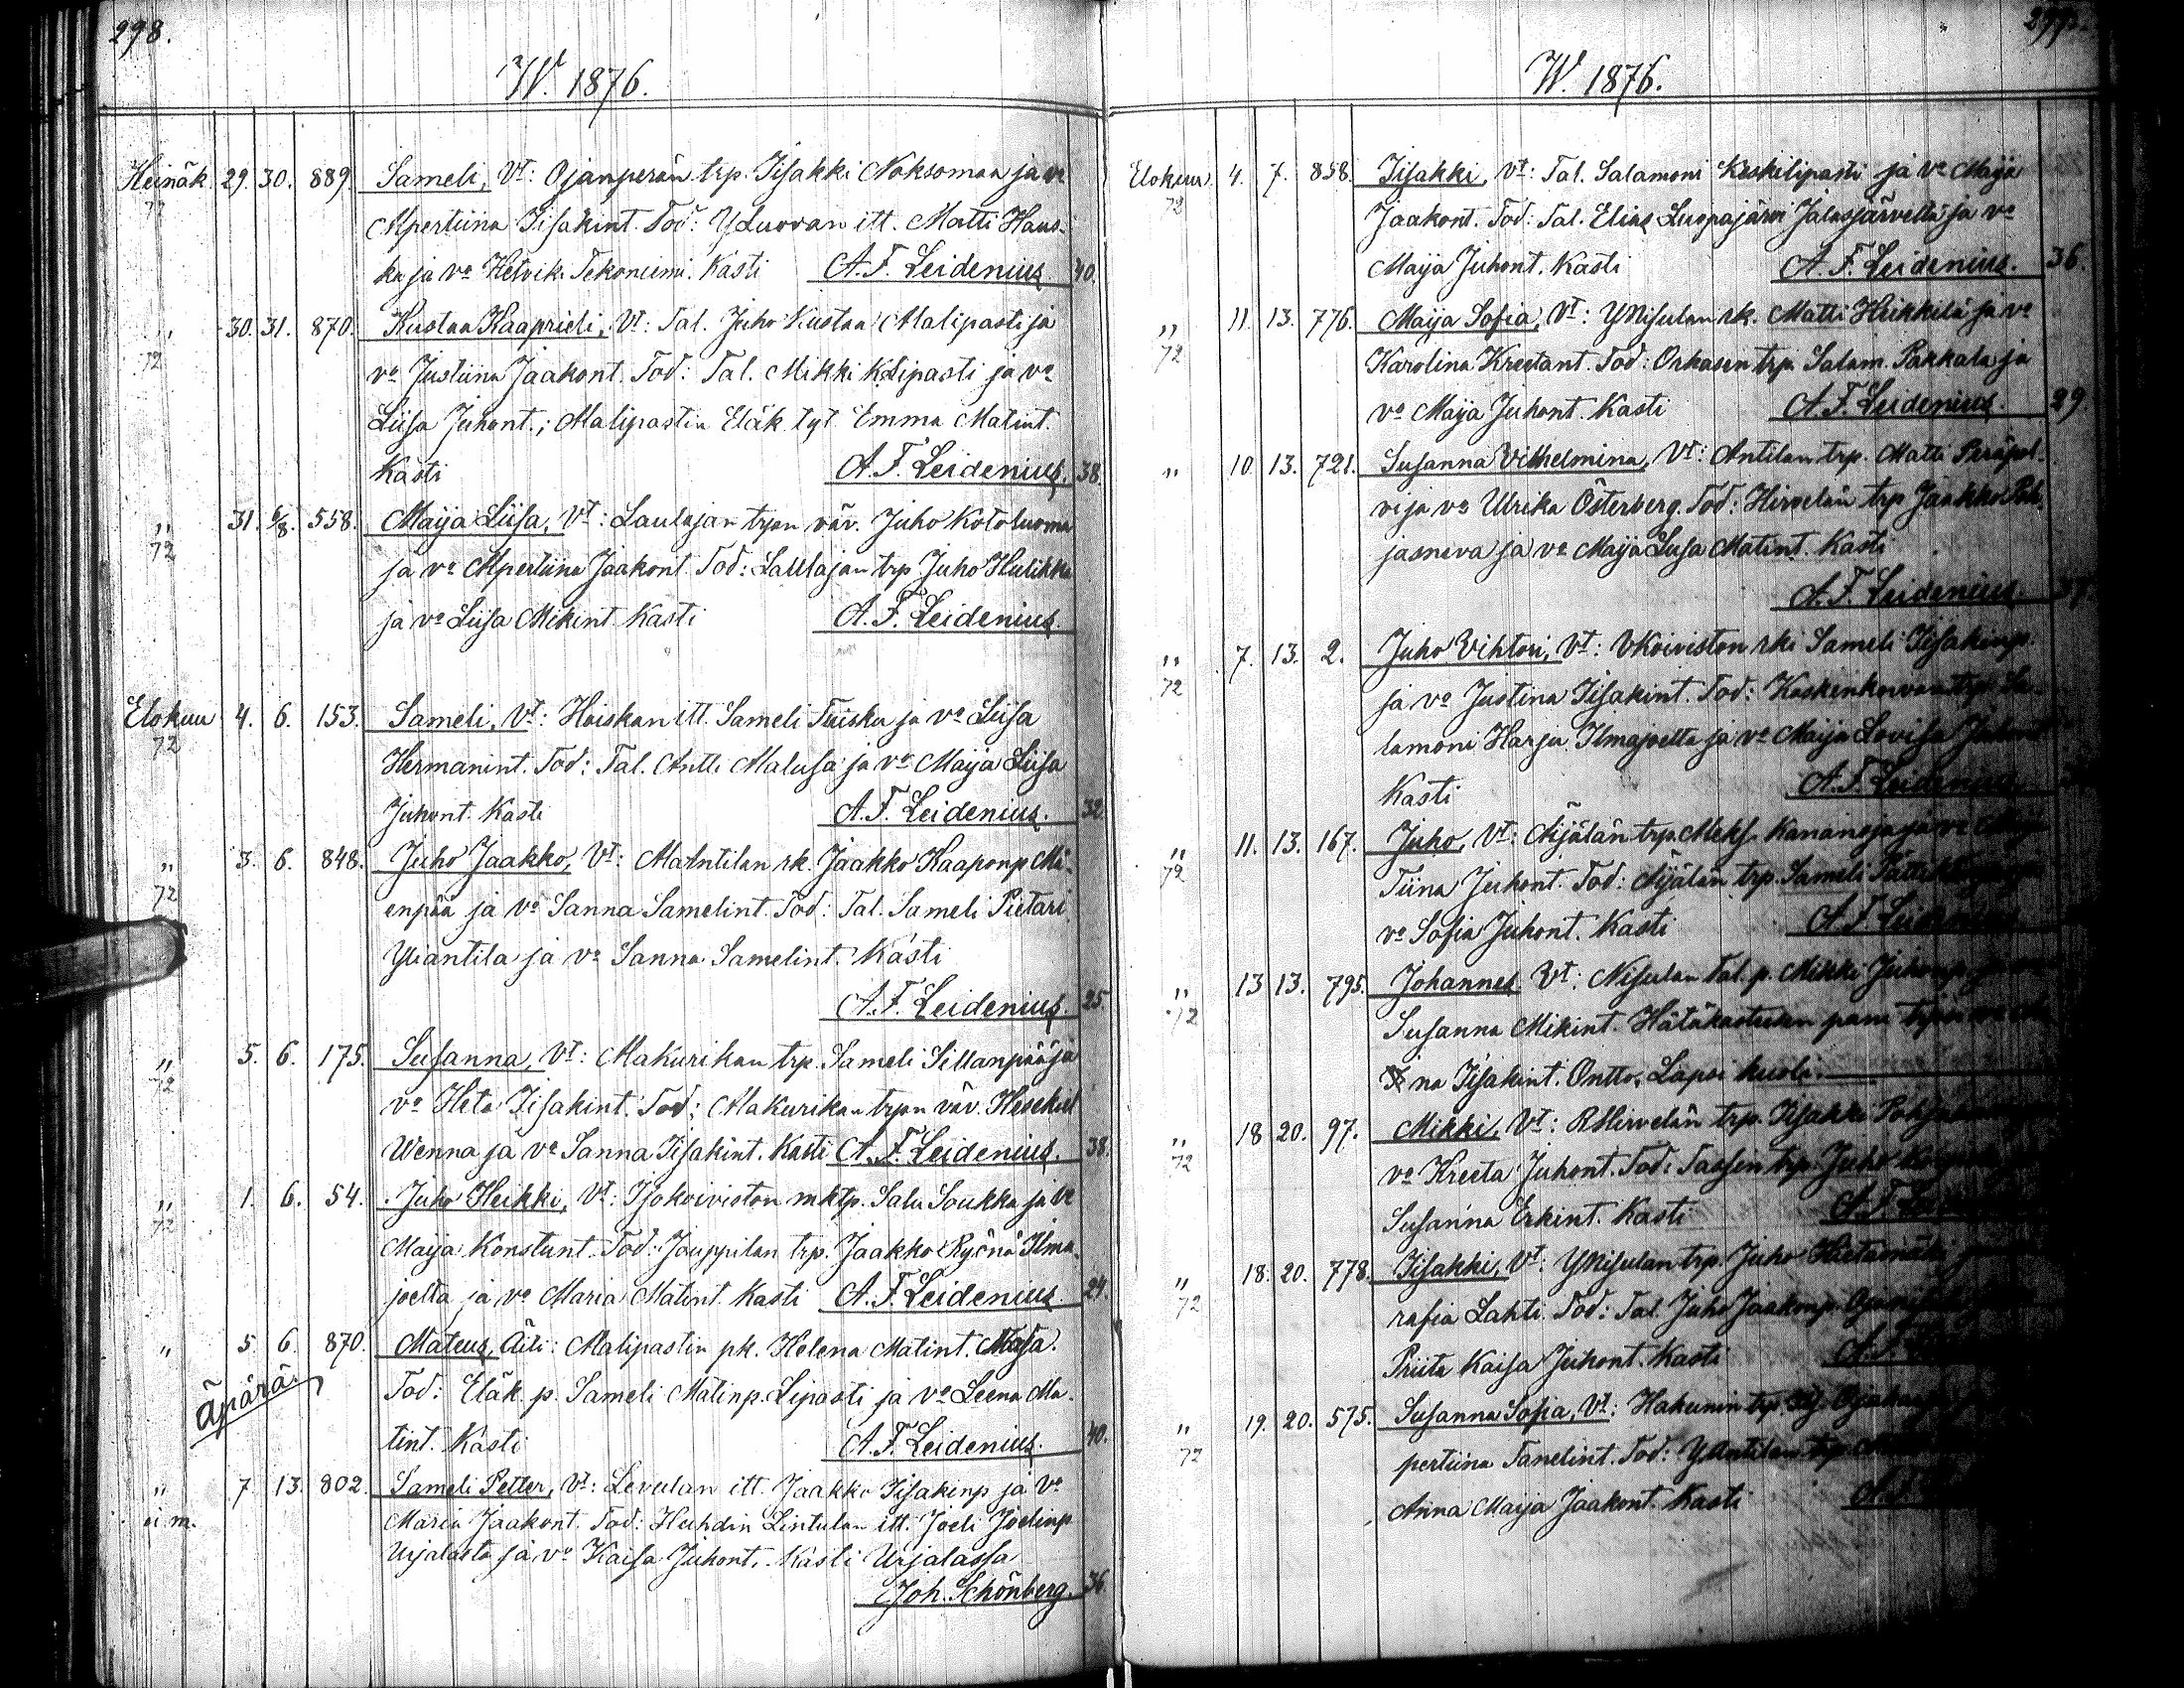 298.
W. 1876.
Heinäk. 29. 30. 889. Sameli, Vt: Ojanperän trp. Iisakki Noksoman ja vo
72 Alpertiina Iisakint. Tod: YLuovan itt. Matti Haus-
ka ja vo Hetvik Tekoniemi. Kasti A. F. Leidenius. 40.
" 30. 31. 870. Kustaa Kaaprieli, Vt: Tal. Juho Kustaa Malipasti ja
72 vo Justiina Jaakont. Tod: Tal. Mikki KLipasti ja vo
Liisa Juhont.; Malipastin Eläk. tyt. Emma Matint.
Kasti A. F. Leidenius. 38.
" 31. 6/8. 558. Maija Liisa, Vt: Laulajan trpn väv. Juho Kotoluoma
72 ja vo Alpertiina Jaakont. Tod: Laulajan trp. Juho Hulikka
ja vo Liisa Mikint. Kasti A. F. Leidenius.
Elokuu 4. 6. 153. Sameli, Vt: Hoiskan itt. Sameli Tuisku ja vo Liisa
72 Hermanint. Tod: Tal. Antti Malusa ja vo Maija Liisa
Juhont. Kasti A. F. Leidenius. 32.
" 3. 6. 848. Juho Jaakko, Vt: MaAntilan rk. Jaakko Kaaponp. Mä-
72 enpää ja vo Sanna Samelint. Tod: Tal. Sameli Pietari
Yliantila ja vo Sanna Samelint. Kasti
A. F. Leidenius. 25.
" 5. 6. 175. Susanna, Vt: Makurikan trp. Sameli Sillanpää ja
72 vo Heta Iisakint. Tod: Makurikan trpn väv. Hesekiel
Wenna ja vo Sanna Iisakint. Kasti A. F. Leidenius. 38.
" 1. 6. 54. Juho Heikki, Vt: Isokoiviston mktp. Salu Soukka ja vo
72 Maija Konstant. Tod: Jouppilan trp. Jaakko Ryönä Ilma-
joelta ja vo Maria Matint. Kasti A. F. Leidenius. 24.
" 5. 6. 870. Mateus, Äiti: Malipastin pk. Helena Matint. Masa.
Äpärä. Tod: Eläk. p. Sameli Matinp. Lipasti ja vo Leena Ma-
tint. Kasti A. F. Leidenius. 40.
" 7. 13. 802. Sameli Petter, Vt: Levulan itt. Jaakko Iisakinp. ja vo
ei m. Maria Jaakont. Tod: Huhdin Lintulan itt. Joeli Joelinp.
Urjalasta ja vo Kaisa Juhont. Kasti Urjalassa
Joh. Schönberg. 36.
W. 1876.
Elokuu 4. 7. 858. Iisakki, Vt: Tal. Salamoni Keskilipasti ja vo Maija
72 Jaakont. Tod: Tal. Elias Luopajärvi Jalasjärveltä ja vo
Maija Juhont. Kasti A. F. Leidenius. 36.
" 11. 13. 776. Maija Sofia, Vt: YNisulan rk. Matti Heikkilä ja vo
72 Karolina Kreetant. Tod: Orkasen trp. Salam. Pakkala ja
vo Maija Juhont. Kasti A. F. Leidenius. 29.
" 10. 13. 721. Susanna Vilhelmina, Vt: Antilan trp. Matti Peräpol-
vi ja vo Ulrika Österberg. Tod: Hirvelän trp. Jaakko Poh-
jasneva ja vo Maija Liisa Matint. Kasti
A. F. Leidenius. 37.
" 7. 13. 2. Juho Vihtori, Vt: VKoiviston rki Sameli Iisakinp.
72 ja vo Justina Iisakint. Tod: Koskenkorvan trp. Sa-
lamoni Harju Ilmajoelta ja vo Maija Lovisa Juhont.
Kasti A. F. Leidenius
" 11. 13. 167. Juho, Vt: Äijälän trp. Meks. Kananoja ja vo
72 Tiina Juhont. Tod: Äijälän trp. Sameli
vo Sofia Juhont. Kasti A. F. Leidenius
" 13. 13. 795. Johannes Vt: Nisulan Tal. p. Mikki Juhonp.
72 Susanna Mikint. Hätäkasteen pani
na Iisakint. Ontto. Lapsi kuoli.
" 18. 20. 97. Mikki, Vt: RHirvelän trp. Iisakki
72 vo Kreeta Juhont. Tod: Tassin trp. Juho
Susanna Erkint. Kasti A. F.
" 18. 20. 778. Iisakki, Vt: YNisulan trp. Juho Hietamäki
72 rafia Lahti. Tod: Tal. Juho Jaakonp.
Priita Kaisa Juhont. Kasti A. F.
" 19. 20. 575. Susanna Sofia, Vt: Hakunin trp.
72 pertiina Tanelint. Tod: YAntilan trp.
Anna Maija Jaakont. Kasti